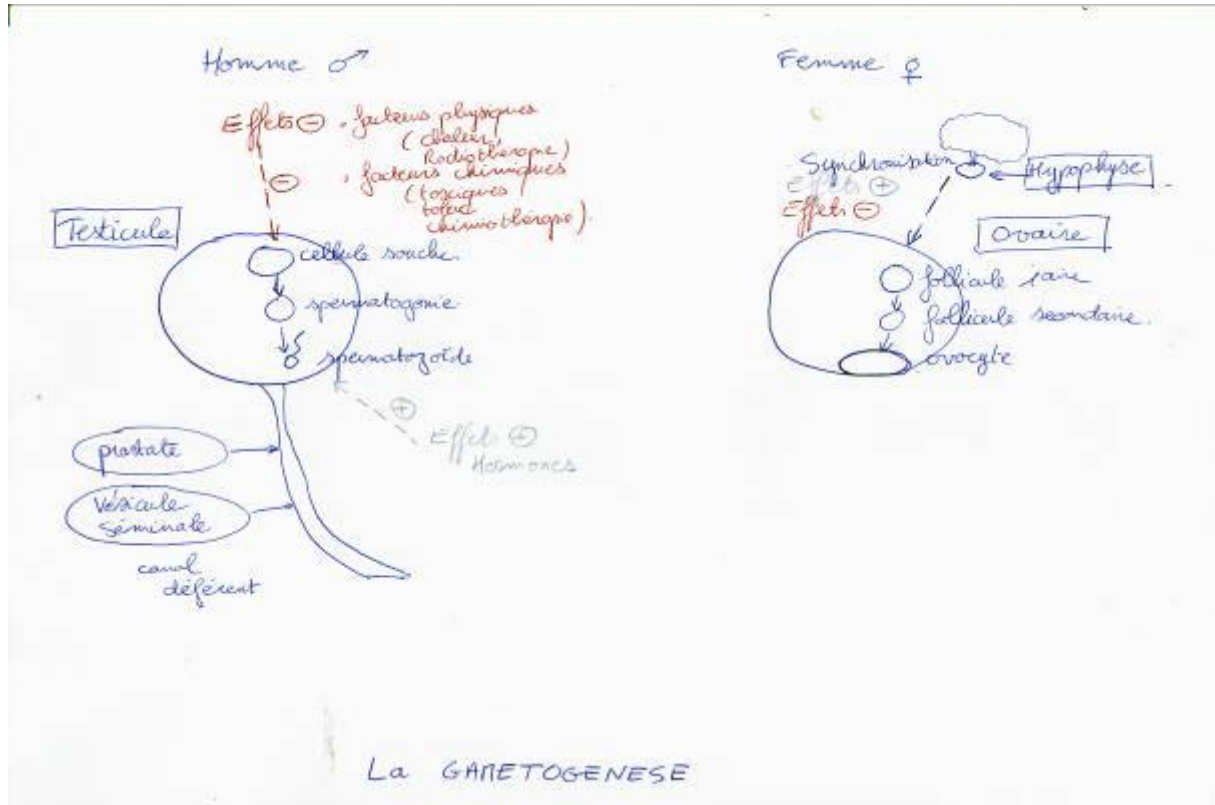 Homme ♂
Effets ⊖ . facteurs physiques
(chaleur,
Radiothérapie)
⊖ . facteurs chimiques
(toxiques
tabac
chimiothérapie).
Testicule
cellule souche.
spermatogonie
spermatozoïde
⊕
Effets ⊕
Hormones
prostate
Vésicule
séminale
canal
déférent
Femme ♀
Synchronisation
Hypophyse
Effets ⊕
Effets ⊖
Ovaire
follicule Iaire
follicule secondaire.
ovocyte
La GAMETOGENESE